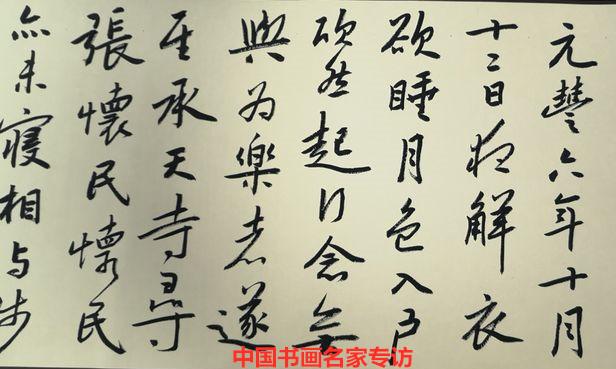 元豐六年十月
十二日夜解衣
欲睡月色入戶
欣然起行念無
與為樂者遂
至承天寺尋
張懷民懷民
亦未寢相與步
中国书画名家专访